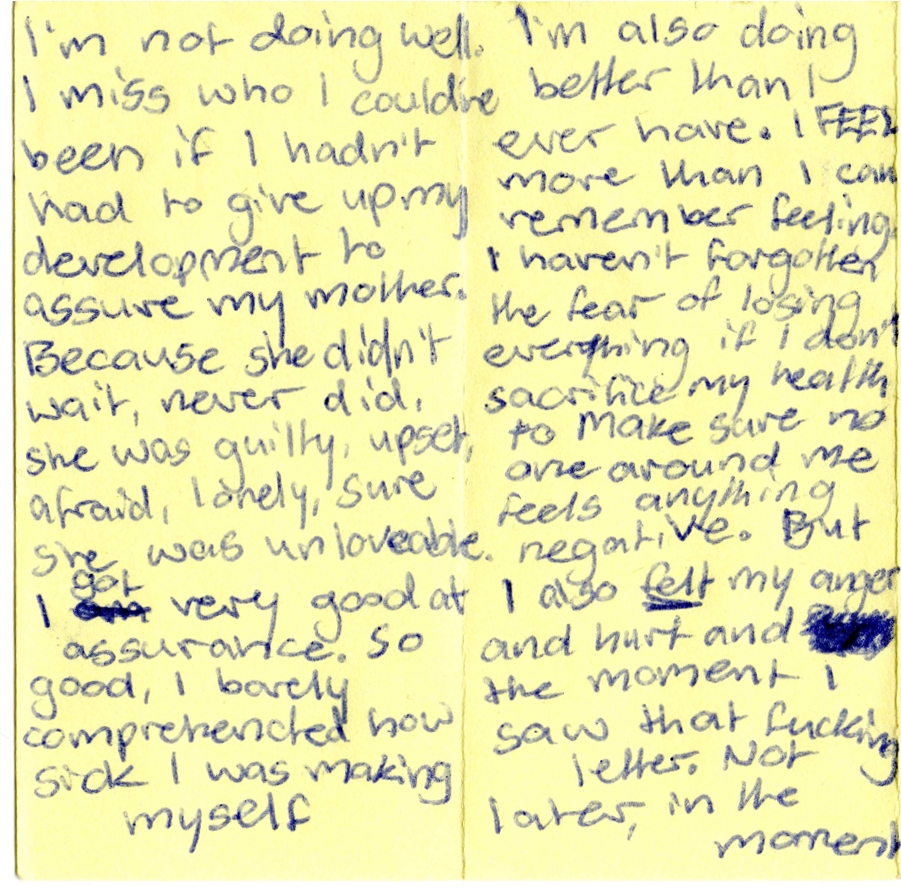 I'm not doing well.
I miss who I could've
been if I hadn't
had to give up my
development to
assure my mother.
Because she didn't
wait, never did,
she was guilty, upset,
afraid, lonely, sure
she was unloveable.
I got very good at
assurance. So
good, I barely
comprehended how
sick I was making
myself
I'm also doing
better than I
ever have. I FEEL
more than I can
remember feeling.
I haven't forgotten
the fear of losing
everything if I don't
sacrifice my health
to make sure no
one around me
feels anything
negative. But
I also felt my anger
and hurt and
the moment I
saw that fucking
letter. Not
later, in the
moment